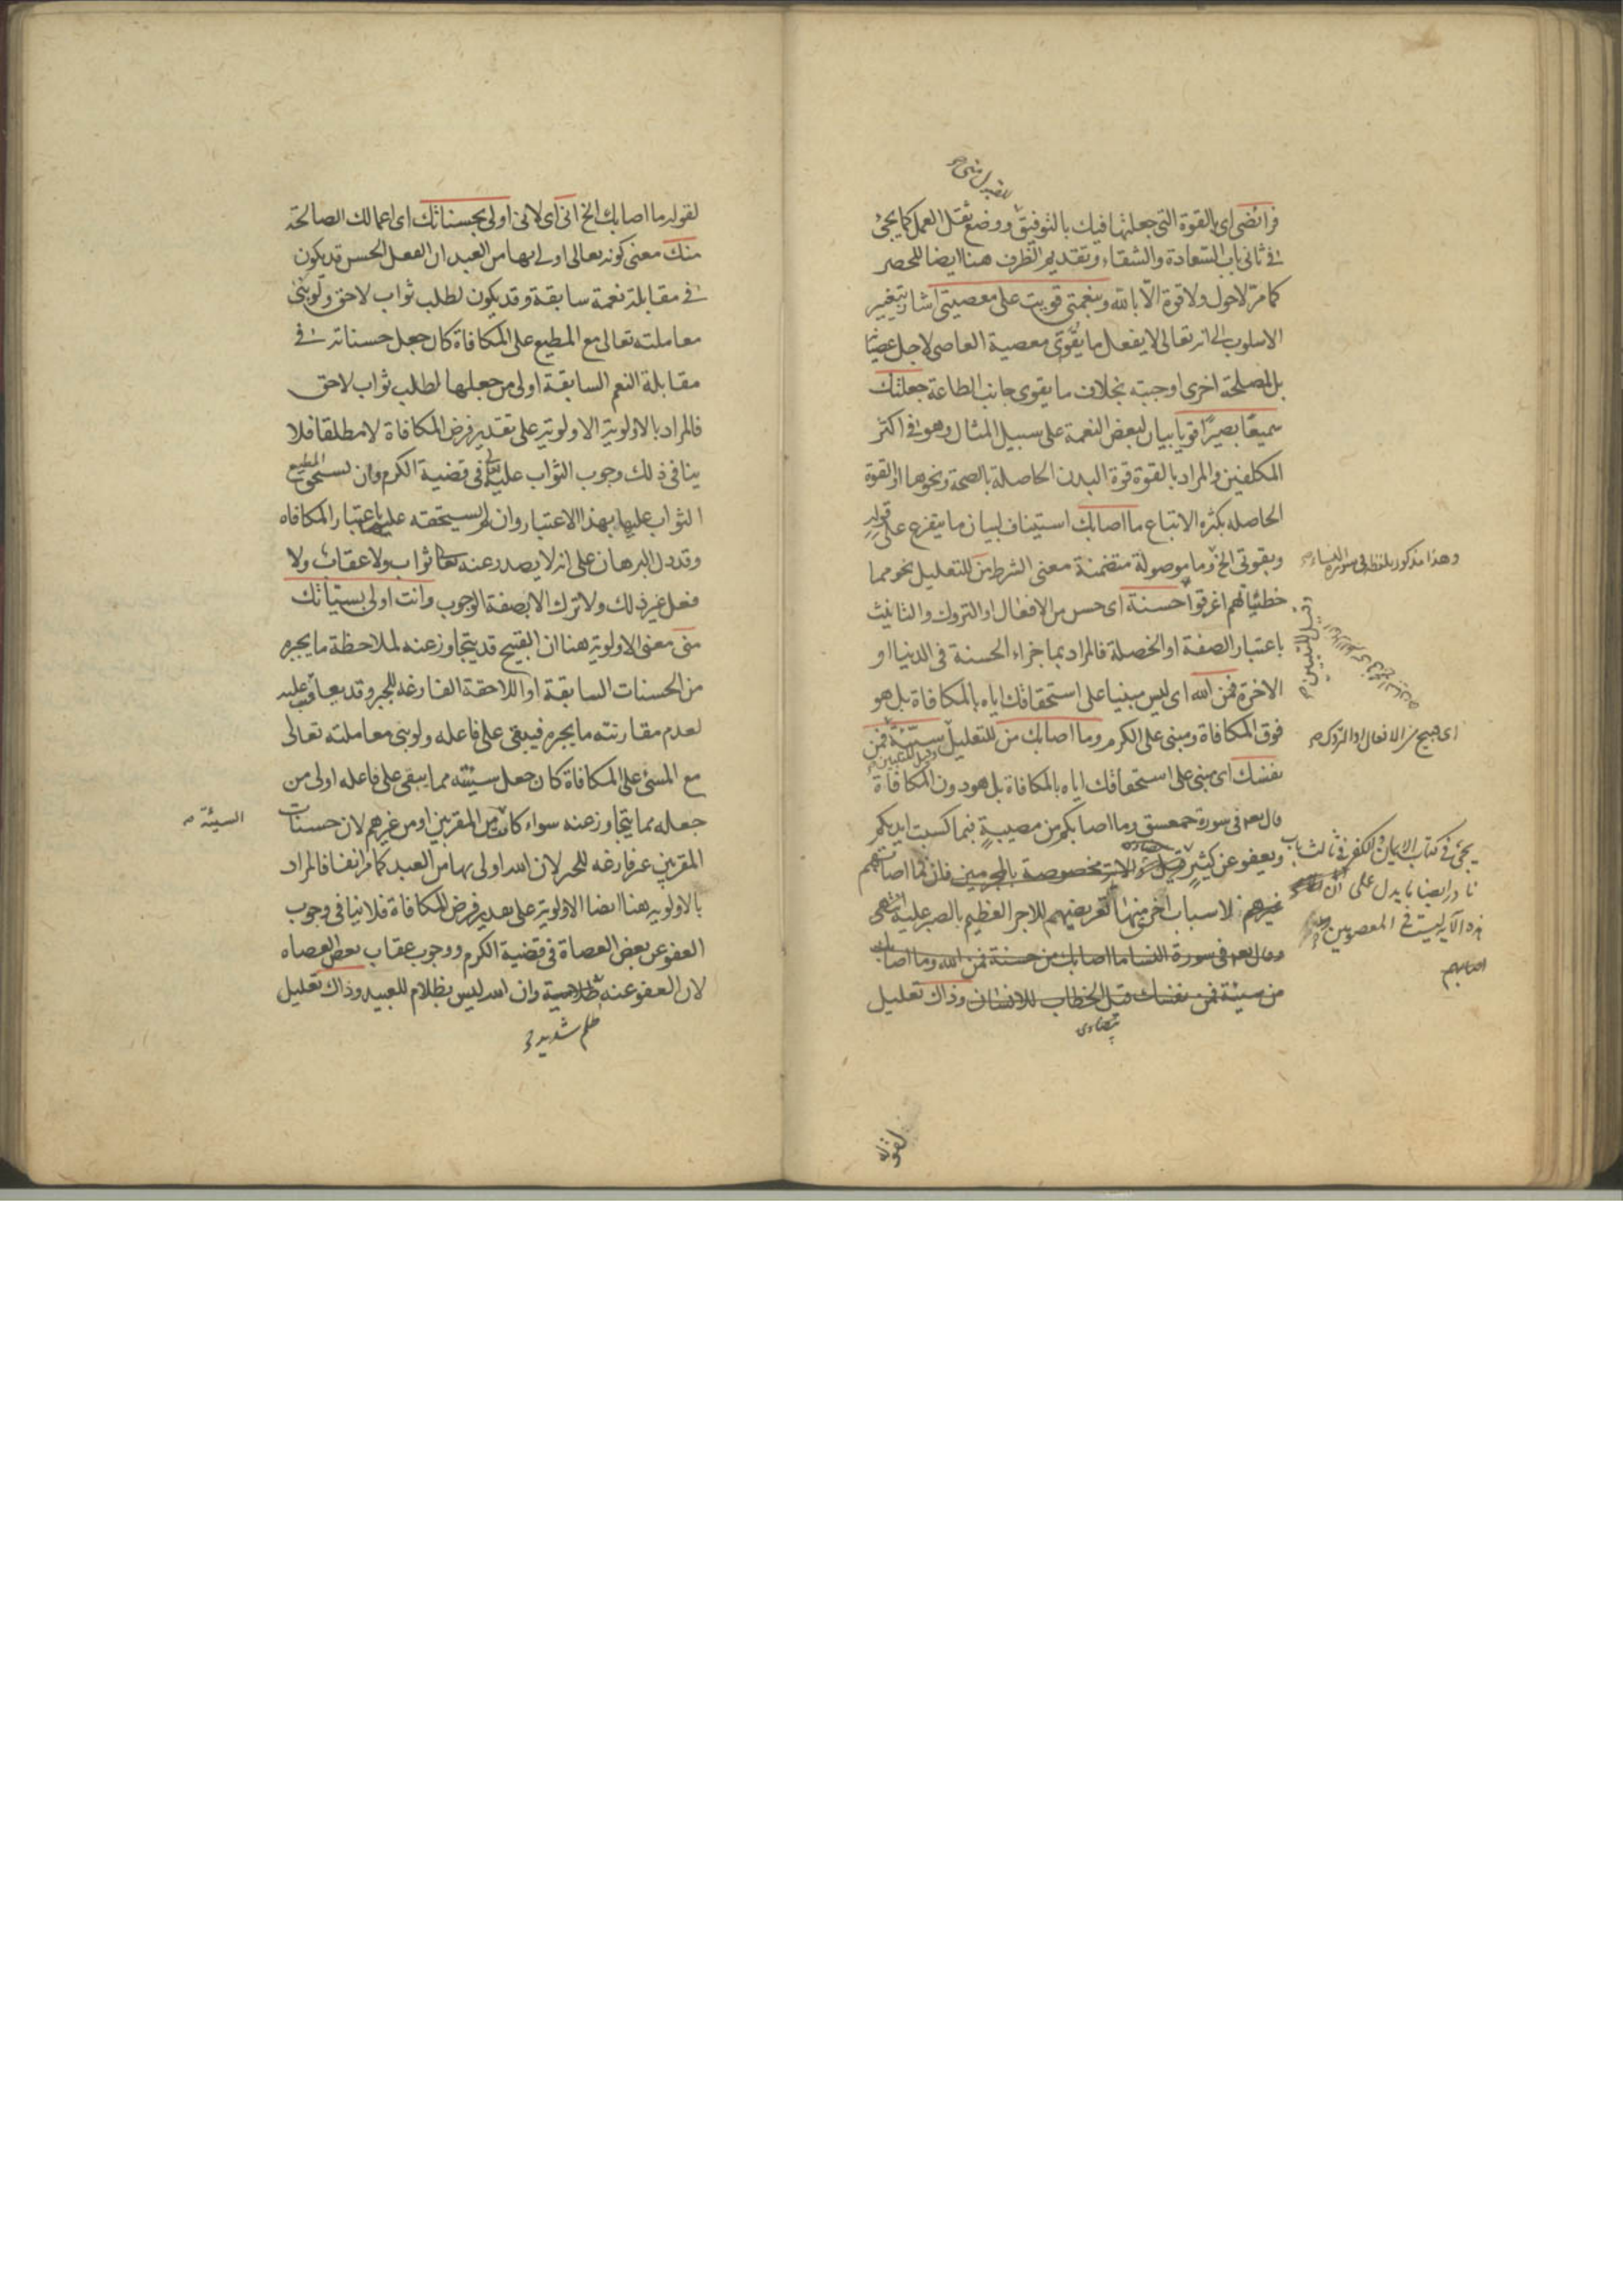 فرائضى اى بالقوة التى جعلتها فيك بالتوفيق ووضع ثقل العمل كما يجئ
فى ثانى باب السعادة والشقاء وتقديم الظرف هنا ايضا للحصر
كما مرّ لاحول ولا قوة الّا بالله وبنعمتى قويت على معصيتى اشار بتغيير
الاسلوب الى انه تعالى لا يفعل ما يقوّى معصية العاصى لاجل
بل لمصلحة اخرى اوجبته بخلاف ما يقوى جانب الطاعة جعلتك
سميعًا بصيرًا قويا بيان لبعض النعمة على سبيل المثال وهو فى اكثر
المكلفين والمراد بالقوة قوة البدن الحاصلة بالصحة ونحوها او القوة
الحاصله بكثره الاتباع ما اصابك استيناف لبيان ما يتفرع على قوله
وبقوتى الخ وما موصولة متضمنة معنى الشرط من للتعليل نحو مما
وهذا مذكور بلفظه فى سورة النساء
خطئياتهم اغرقوا حسنة اى حسن من الافعال او التروك والتانيث
وقيل للتبيين
باعتبار الصفة او الخصلة فالمراد بما جزاء الحسنة فى الدنيا او
الاخرة فمن الله اى ليس مبنيا على استحقاقك اياه بالمكافاة بل هو
فوق المكافاة ومبنى على الكرم وما اصابك من للتعليل سيّئة فمن
وقيل للتبيين
اى قبيح من الافعال او التروك
نفسك اى مبنى على استحقاقك اياه بالمكافاة بل هو دون المكافاة
قال تعالى فى سورة حمعسق وما اصابكم من مصيبةٍ فبما كسبت ايديكم
ويعفو عن كثيرٍ قيل والاية مخصوصة بالمجرمين فان ما اصابهم
يجئ فى كتاب الايمان والكفر فى ثالث باب
نادر ايضا ما يدل على ان
هذه الآية ليست فى المعصومين
غيرهم لاسباب اخر منها تعريضهم للاجر العظيم بالصبر عليه انتهى
وقال تعالى فى سورة النسا ما اصابك من حسنة فمن الله وما اصابك
من سيئة فمن نفسك قيل الخطاب للانسان وذاك تعليل
بيضاوى
لقوله
لقوله ما اصابك الخ انى اى لانى اولى بحسناتك اى اعمالك الصالحة
منك معنى كونه تعالى اولى بها من العبد ان الفعل الحسن قد يكون
فى مقابلة نعمة سابقة وقد يكون لطلب ثواب لاحق ولو بنى
معاملته تعالى مع المطيع على المكافاة كان جعل حسناته فى
مقابلة النعم السابقة اولى من جعلها لطلب ثواب لاحق
فالمراد بالاولوية الاولوية على تقدير فرض المكافاة لا مطلقا فلا
ينافى ذلك وجوب الثواب عليه فى قضية الكرم وان يستحق المطيع
الثواب عليها بهذا الاعتبار وان لم يستحقه عليها باعتبار المكافاه
وقد دل البرهان على انه لا يصدر عنه تعالى ثواب ولا عقاب ولا
فعل غير ذلك ولا ترك الا بصفة الوجوب وانت اولى بسيئاتك
منى معنى الاولوية هنا ان القبيح قد يتجاوز عنه لملاحظة ما يجبره
من الحسنات السابقة او اللاحقة الفارغه للجبر وقد يعاقب عليه
لعدم مقارنته ما يجبره فيبقى على فاعله ولو بنى معاملته تعالى
مع المسئ على المكافاة كان جعل سيئته مما يبقى على فاعله اولى من
جعله مما يتجاوز عنه سواء كانت من المقربين او من غيرهم لان حسنات
السيئة
المقربين غير فارغه للجبر لان الله اولى بها من العبد كما مر انفا فالمراد
بالاولويه هنا ايضا الاولوية على تقدير فرض المكافاة فلا ينافى وجوب
العفو عن بعض العصاة فى قضية الكرم ووجوب عقاب بعض العصاه
لان العفو عنه وان الله ليس بظلام للعبيد وذاك تعليل
ظلم شديد